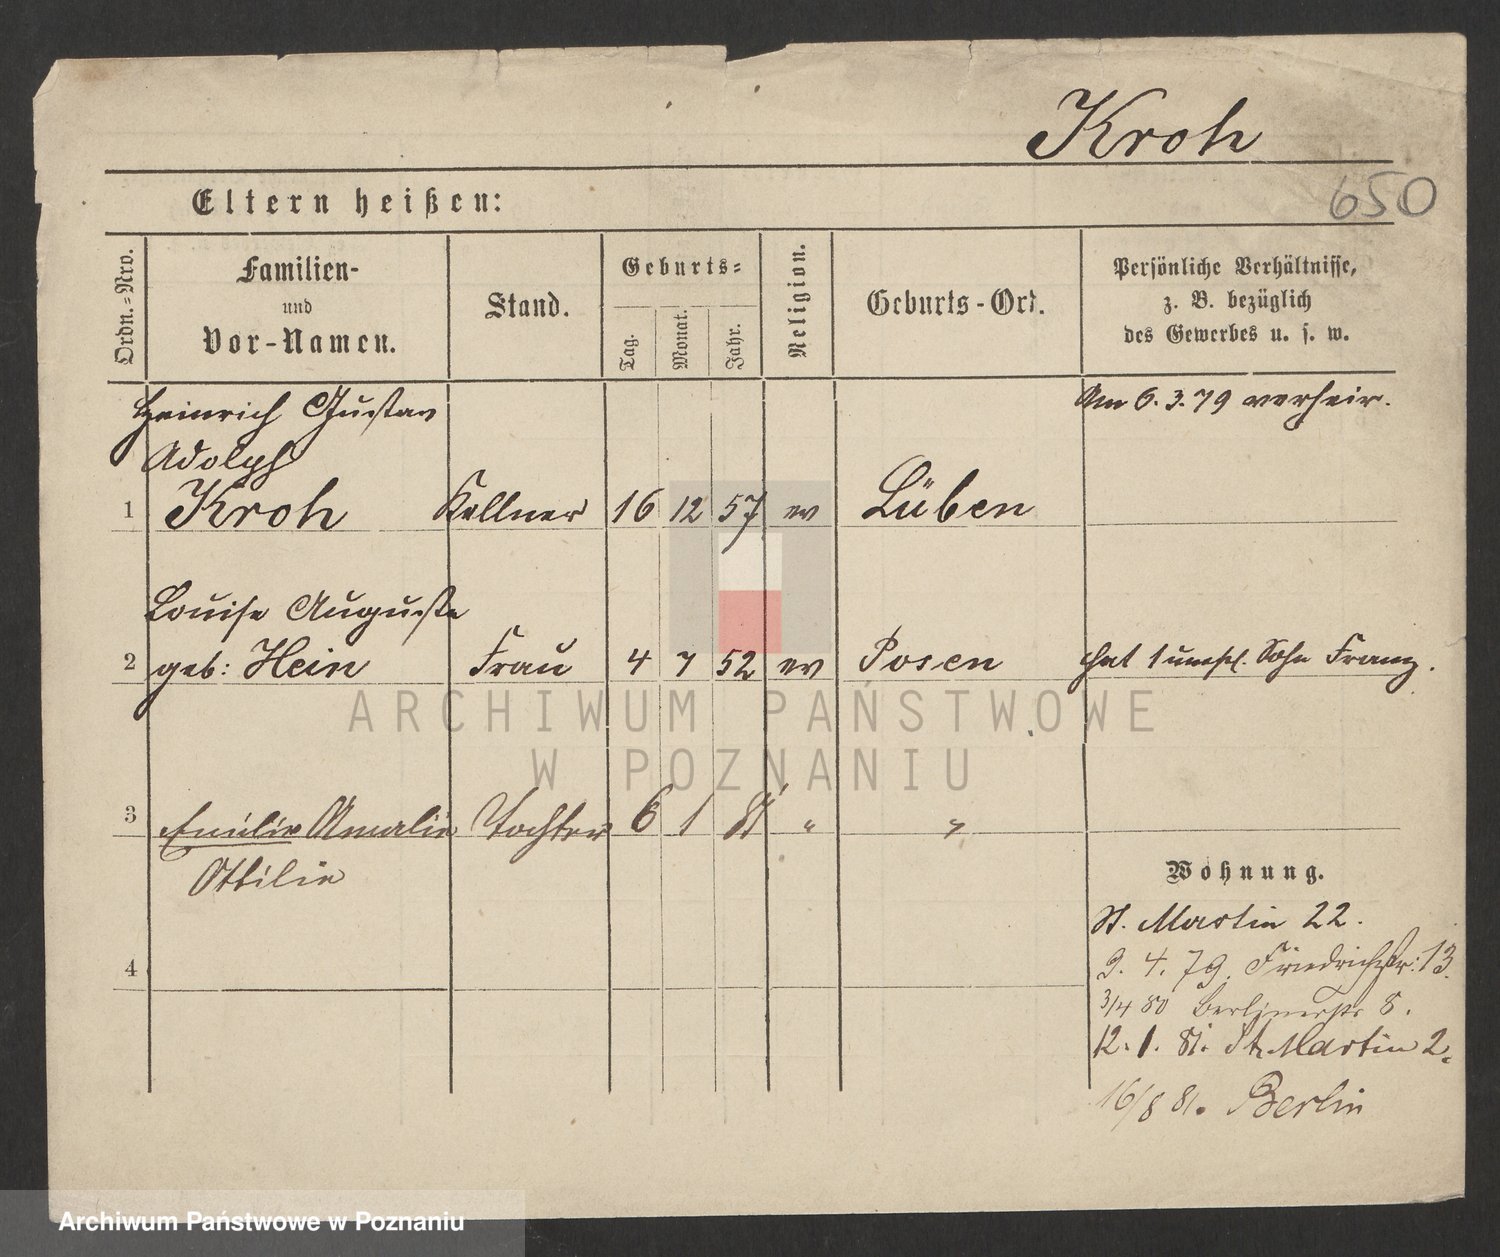 Kroh
650
Eltern heißen:
Ordn.=Nro.
Familien-
und
Vor-Namen.
Stand.
Geburts=
Tag.
Monat.
Jahr.
Religion.
Geburts-Ort.
Persönliche Verhältnisse,
z. B. bezüglich
des Gewerbes u. s. w.
Heinrich Gustav
Adolph
1 Kroh Kellner 16 12 57 ev Lüben
Am 6.3.79 verheir.
Louise Auguste
2 geb: Hein Frau 4 7 52 ev Posen hat 1 unehl. Sohn Franz.
3 Emilie Amalie Tochter 6 1 81 " "
Ottilie
4
Wohnung.
St. Martin 22.
9. 4. 79. Friedrichstr: 13.
3/4 80 Berlinerstr 8.
12. 1. 81. St. Martin 2.
16/8 81. Berlin
ARCHIWUM PAŃSTWOWE
W POZNANIU
Archiwum Państwowe w Poznaniu